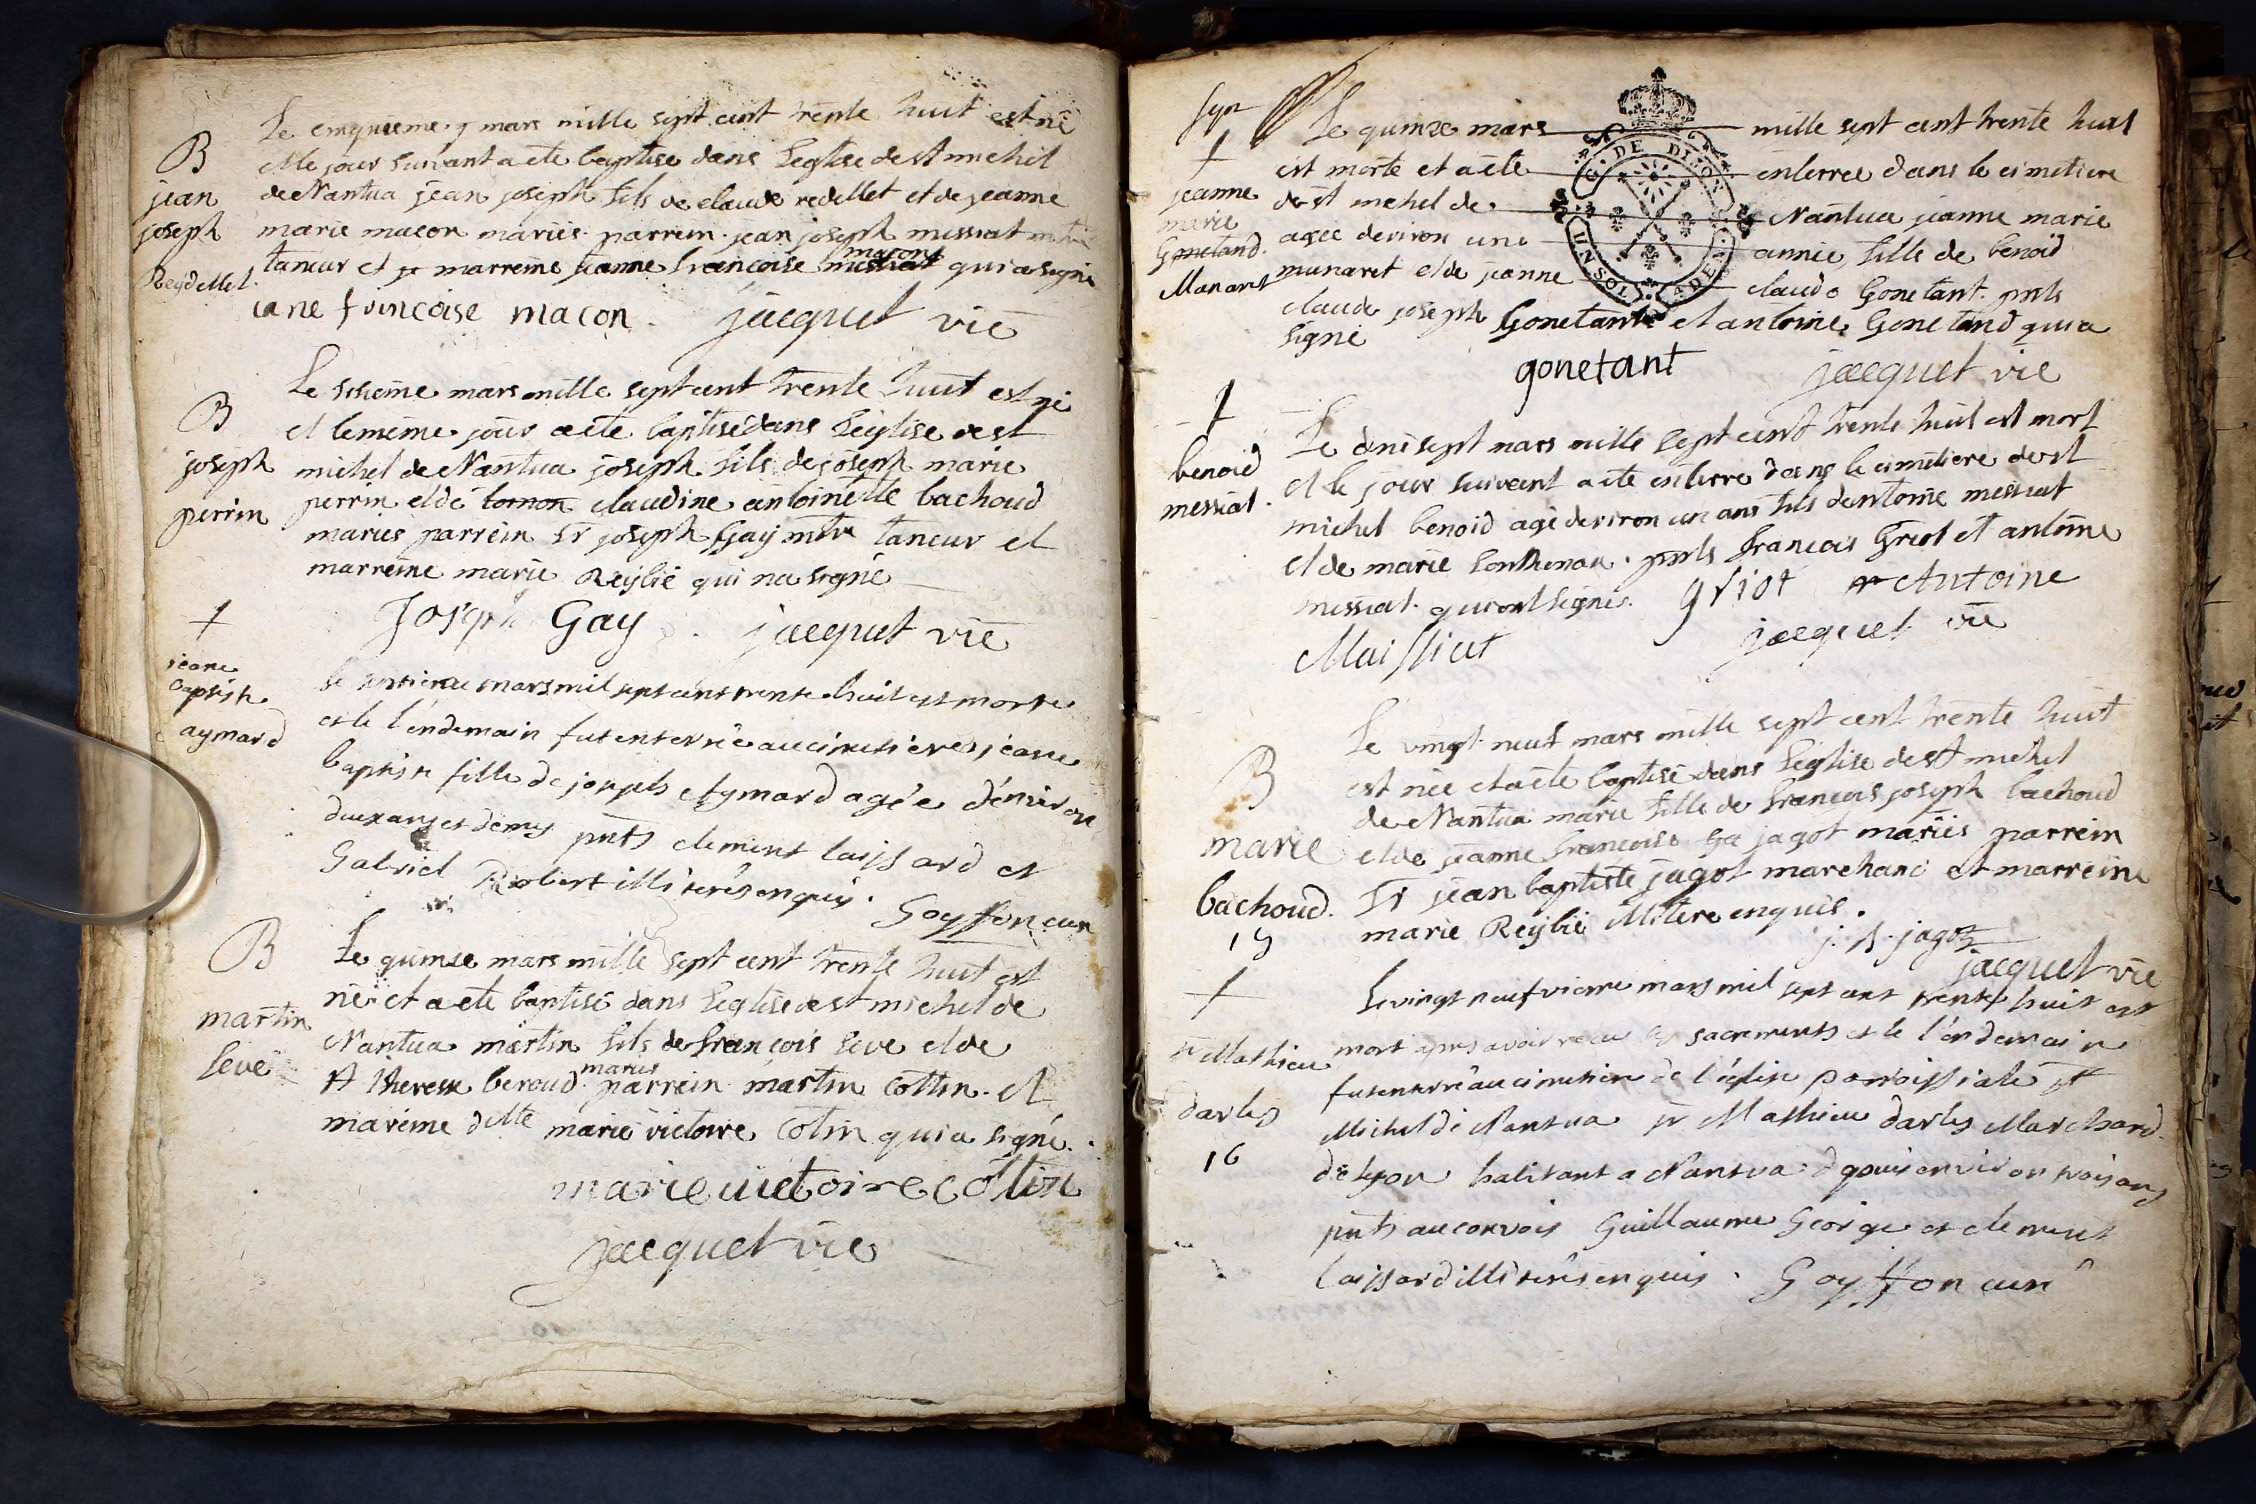 B
jean
joseph
Reydellet.
Le cinquieme mars mille sept cent trente huit est né
et le jour suivant a eté baptise dans Leglise de st michel
de Nantua jean joseph fils de claude redellet et de jeanne
marie macon mariés. parrein. jean joseph messiat
taneur et marreine jeanne francoise macon qui a signé
francoise macon. jacquet vic
B
joseph
perrin
Le sisieme mars mille sept cent trente huit est né
et le meme jour a eté baptisé dans Leglise de st
michel de Nantua joseph fils de joseph marie
perrin et de claudine antoinette bachoud
mariés parrein Sr joseph Gay mtre taneur et
marreine marie Reÿbié qui na signé
Joseph Gay. jacquet vic
†
jeane
baptiste
aymard
le mars mil sept cent trente huit est morte
et le l'endemain fut enterrée au cimetiere jeane
baptiste fille de joseph Aymard agée d'environ
deux ans et demy pnts clement laissard et
Gabriel Robert illiterés enquis.
Goyffon curé
B
martin
seve
Le quinze mars mille sept cent trente huit est
né et a eté baptisé dans Leglise de st michel de
Nantua martin fils de francois seve et de
therese beroud mariés parrein martin cottin. et
mareine dlle marie victoire Cotin qui a signé.
marie victoire cottin
jacquet vic
†
jeanne
marie
Gonetand
Munaret
G. DE DIJON
UN SOL 4 DEN.
Le quinze mars mille sept cent trente huit
est morte et a eté enterree dans le cimetiere
de st michel de Nantua jeanne marie
agée deviron une année, fille de benoid
munaret et de jeanne claudo Gonetant. pnts
claude joseph Gonetant et antoine Gonetand qui a
signé
gonetant jacquet vic
†
benoid
messiat.
Le dixsept mars mille sept cent trente huit est mort
et le jour suivant a eté enterre dans le cimetiere de st
michel benoid agé deviron un ans fils dantoine messiat
et de marie sonthonax. pnts francois Griot et antoine
messiat. qui ont signés. griot Antoine
Maissiat jacquet vic
B
marie
bachoud.
15
Le vingt neuf mars mille sept cent trente huit
est née et a eté baptisé dans Leglise de st michel
de Nantua marie fille de francois joseph bachoud
et de jeanne francoise jagot mariés parrein
Sr jean baptiste jagot marchand et marreine
marie Reÿbié illitere enquis.
j. B. jagot
jacquet vic
†
sr Mathieu
darles
16
Le vingt neufvieme mars mil sept cent trente huit est
mort apres avoir receu les sacrements et le l'endemain
fut enterré au cimetiere de l'eglise paroissiale st
Michel de Nantua sr Mathieu darles Marchand
de lyon habitant a Nantua depuis environ trois ans
pnts au convois Guillaume George et clement
laissard illiterés enquis. Goyffon curé